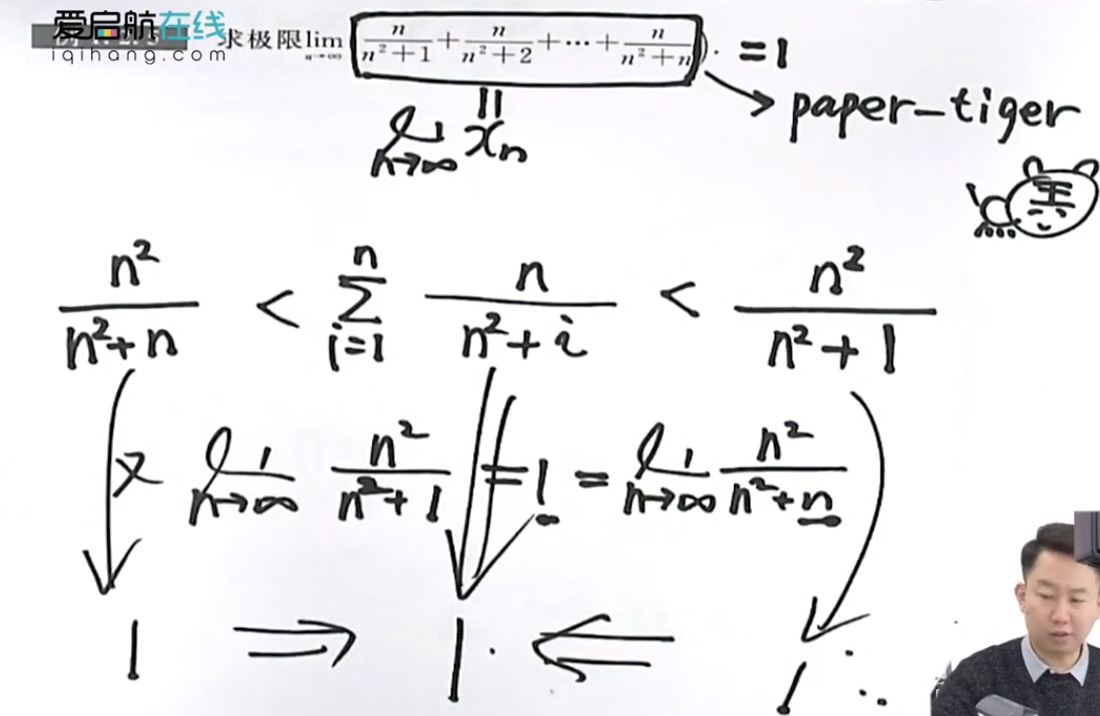 爱启航在线
iqihang.com
求极限 lim n→∞ ( n/(n²+1) + n/(n²+2) + ⋯ + n/(n²+n) ). =1
paper-tiger
lim n→∞ xₙ
王
n²/(n²+n) < ∑ i=1 n n/(n²+i) < n²/(n²+1)
又 lim n→∞ n²/(n²+1) = 1 = lim n→∞ n²/(n²+n)
1 ⇒ 1. ⇐ 1 ∴